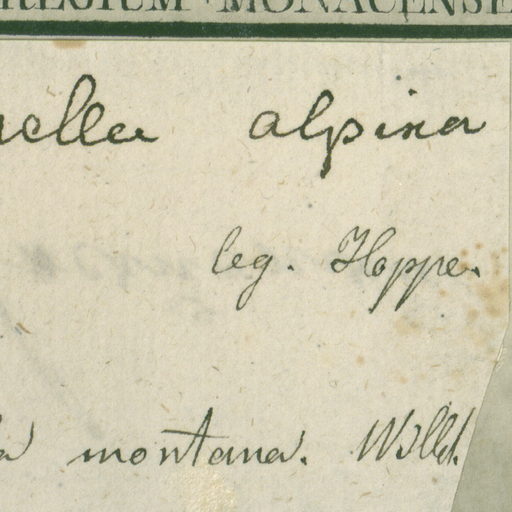 REGIUM MONACENSE
nella alpina
leg. Hoppe.
a montana. Willd.